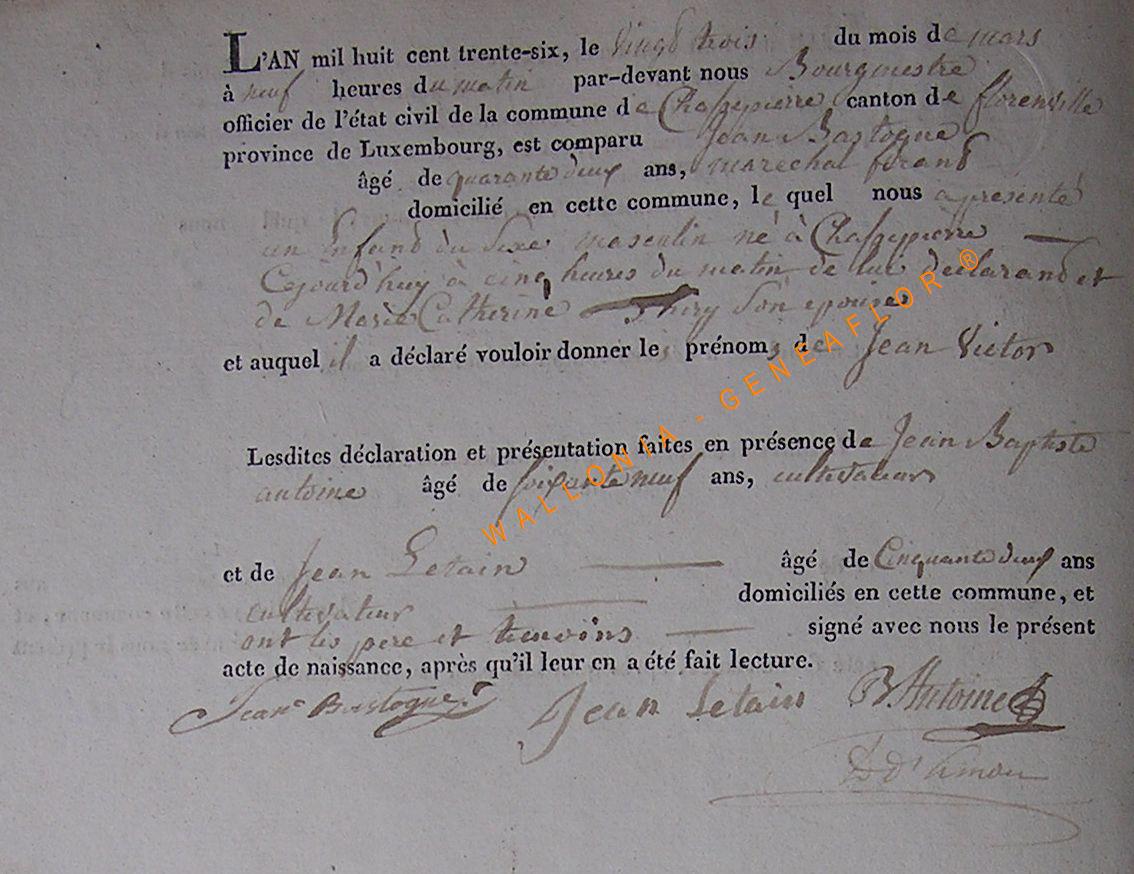 L'AN mil huit cent trente-six, le vingt trois du mois de mars
à neuf heures du matin par-devant nous Bourgmestre
officier de l'état civil de la commune de Chassepierre canton de florenville
province de Luxembourg, est comparu Jean Bastogne
âgé de quarante deux ans, marechal ferand
domicilié en cette commune, le quel nous a présenté
un Enfand du Sexe masculin né à Chassepierre —
Cejourd'huy à cinq heures du matin de lui declarand et
de Marie Catherine Thiry Son epouse
et auquel il a déclaré vouloir donner les prénoms de Jean Victor
Lesdites déclaration et présentation faites en présence de Jean Baptiste
antoine âgé de soixante neuf ans, cultivateur
et de Jean Letain — âgé de Cinquante deux ans
cultivateur — domiciliés en cette commune, et
ont les pere et temoins — signé avec nous le présent
acte de naissance, après qu'il leur en a été fait lecture.
Jean Bastogne Jean Letain B Antoine
WALLONIA - GENEAFLOR ®